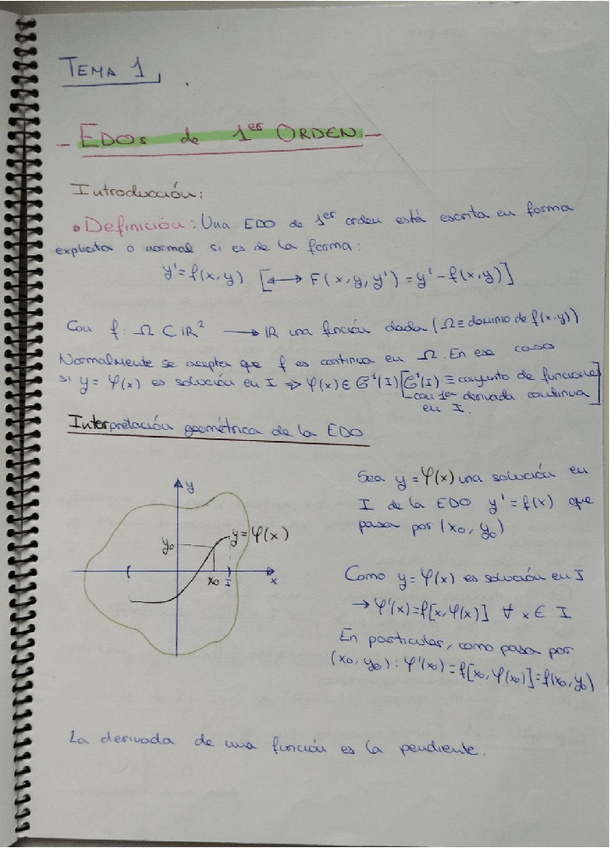 TEMA 1
- EDOs de 1er ORDEN -
Introducción:
• Definición: Una EDO de 1er orden está escrita en forma
explícita o normal si es de la forma:
y' = f(x,y) [⟷ F(x,y,y') = y' - f(x,y)]
Con f: Ω ⊂ ℝ² ⟶ ℝ una función dada (Ω ≡ dominio de f(x,y))
Normalmente se acepta que f es continua en Ω. En ese caso
si y = φ(x) es solución en I ⇒ φ(x) ∈ G¹(I) [G¹(I) ≡ conjunto de funciones
con 1er derivada continua
en I.]
Interpretación geométrica de la EDO
Sea y = φ(x) una solución en
I de la EDO y' = f(x) que
pasa por (x₀, y₀)
y
y₀
y = φ(x)
x₀
I
x
Como y = φ(x) es solución en I
→ φ'(x) = f[x, φ(x)] ∀ x ∈ I
En particular, como pasa por
(x₀, y₀): φ'(x₀) = f[x₀, φ(x₀)] = f(x₀, y₀)
La derivada de una función es la pendiente.